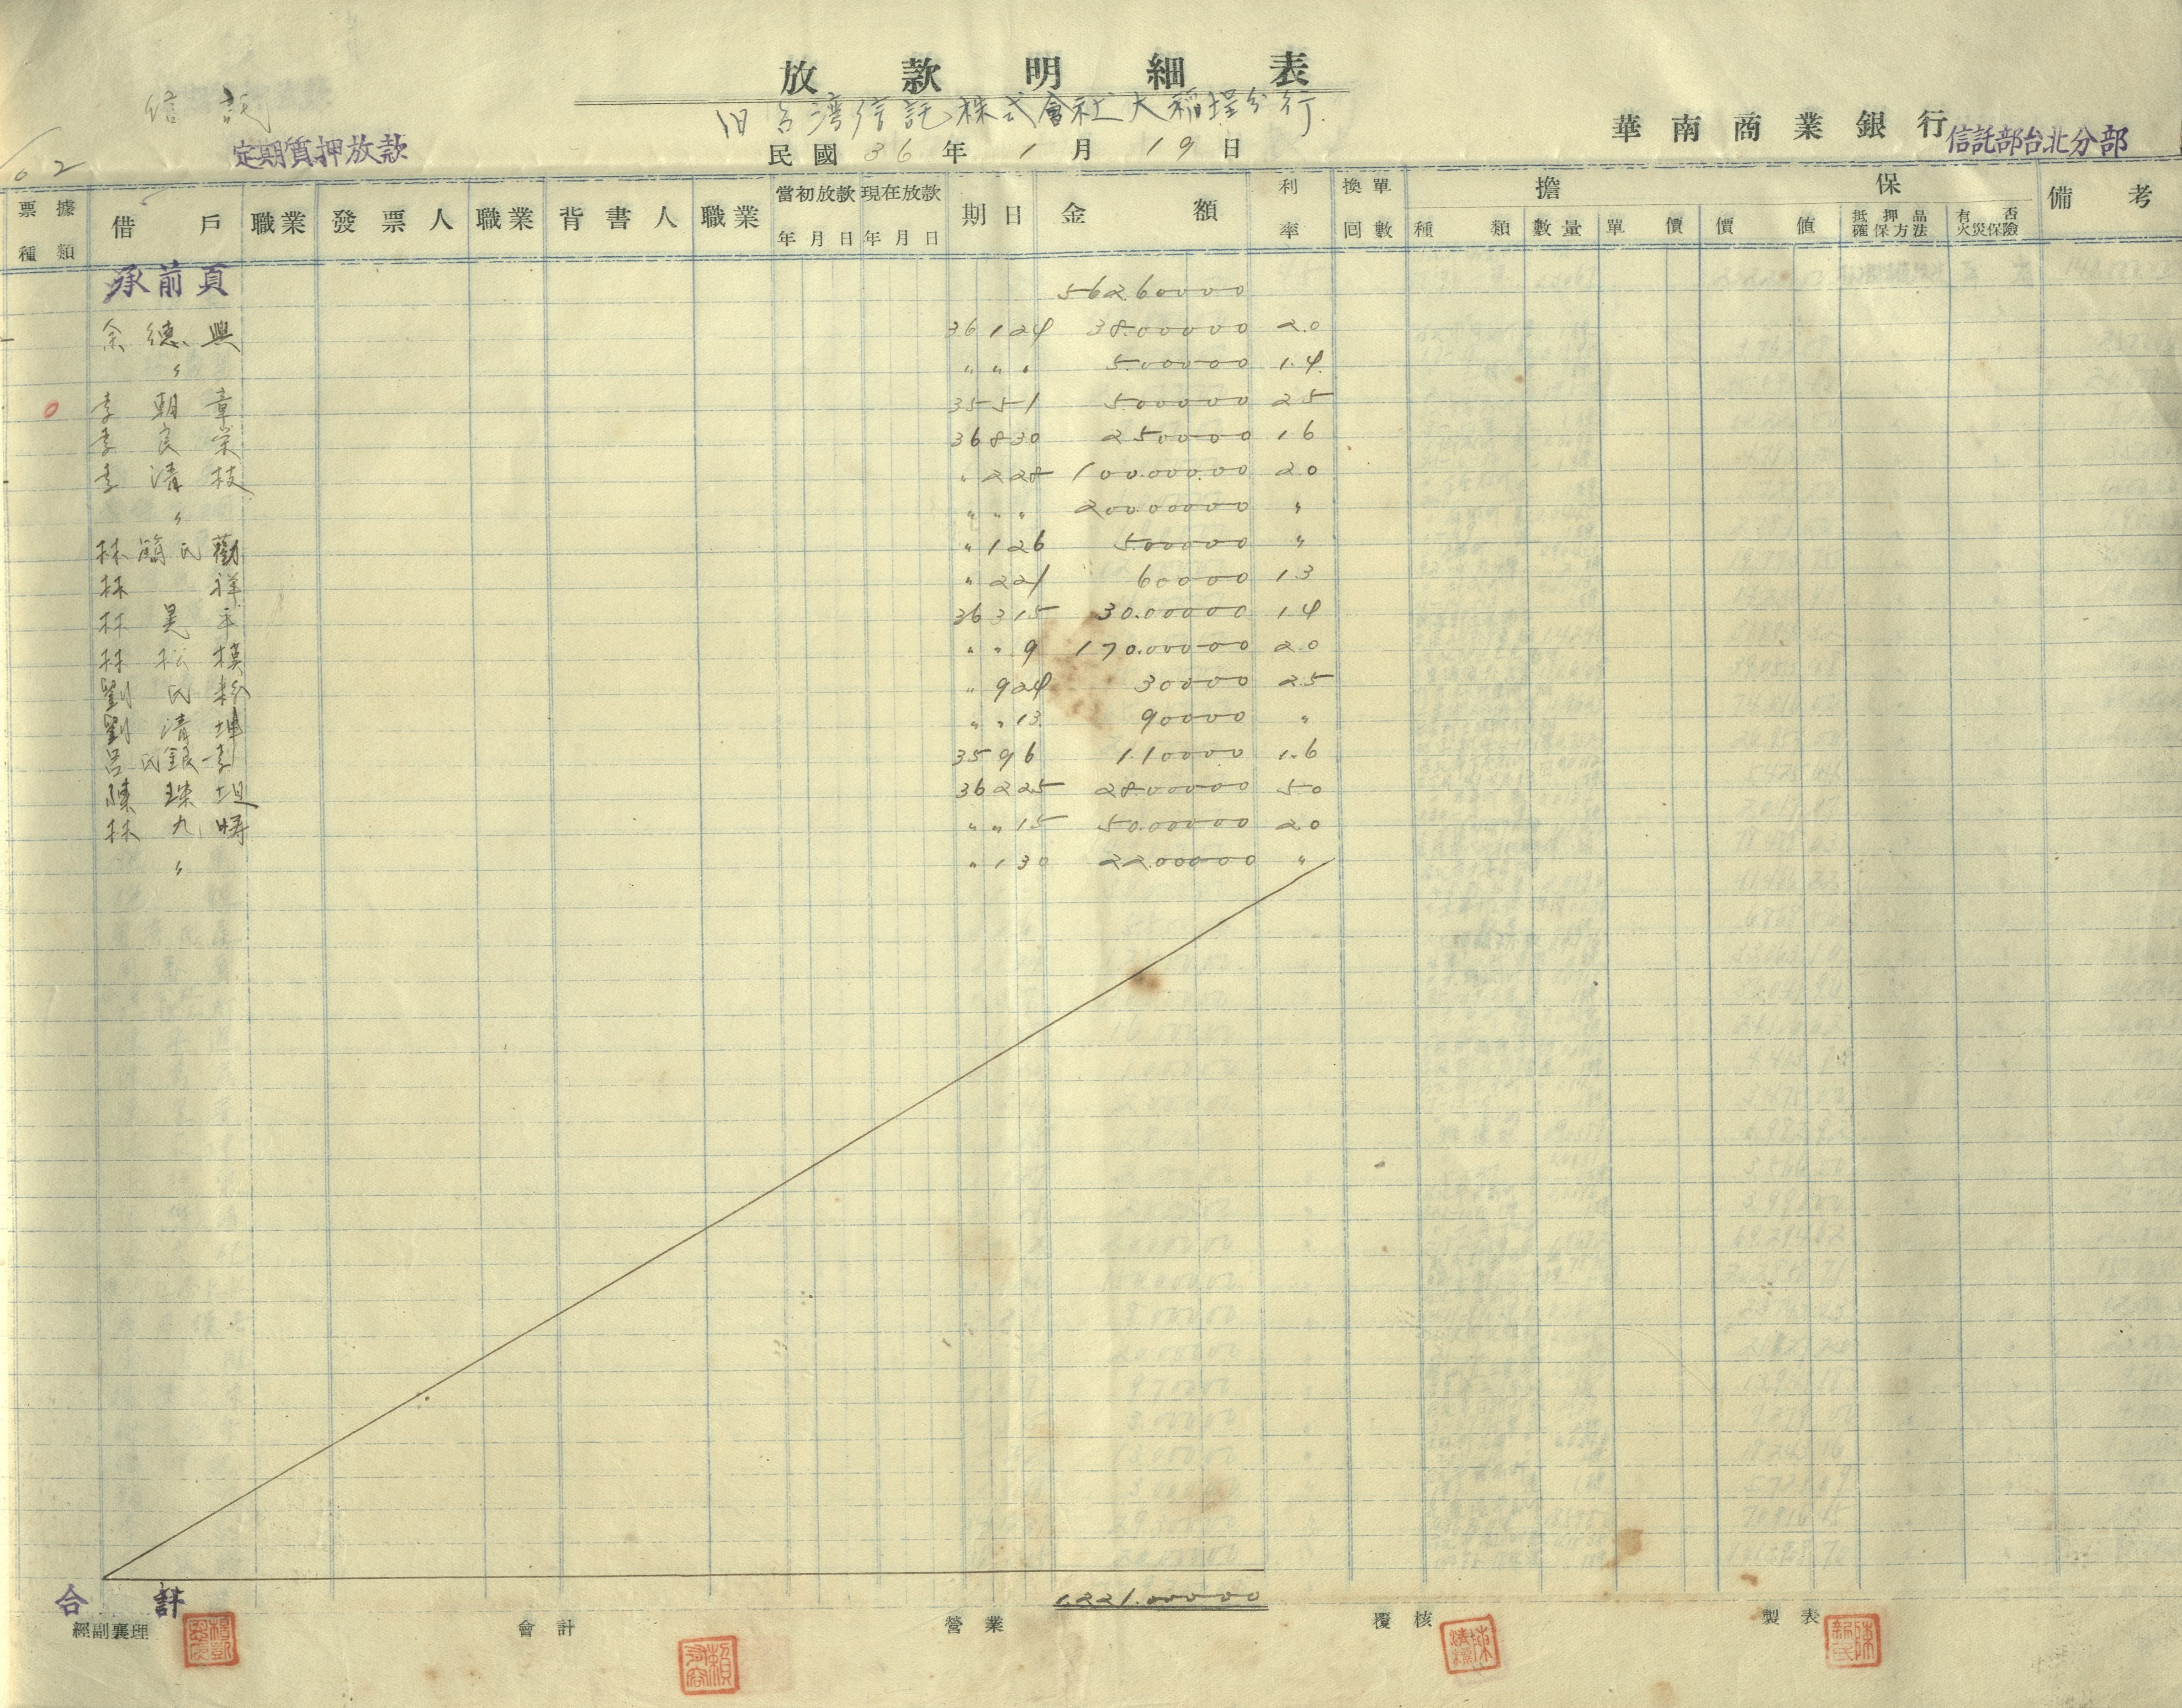 放款明細表
信託
旧台湾信託株式會社大稻埕分行
華南商業銀行 信託部台北分部
定期質押放款
民國36年1月19日
62
票據種類 借戶 職業 發票人 職業 背書人 職業 當初放款 年月日 現在放款 年月日 期日 金額 利率 換單回數 擔保 種類 數量 單價 價值 抵押品確保方法 有否火災保險 備考
承前頁 562.60000
余德興 36 1 24 38.00000 2.0
〃 〃 〃 〃 5.00000 1.4
李朝章 35 5 1 5.00000 2.5
李良榮 36 8 30 2.50000 1.6
李清枝 〃 2 28 100.000.00 2.0
〃 〃 〃 〃 200.00000 〃
林簡氏勸 〃 1 26 5.00000 〃
林祥 〃 2 21 60000 1.3
林晃平 36 3 15 30.00000 1.4
林松模 〃 〃 9 170.00000 2.0
劉氏粉 〃 9 24 30000 2.5
劉清坤 〃 〃 13 90000 〃
呂氏銀李 35 9 6 1.10000 1.6
陳珠坦 36 2 25 28.00000 5.0
林九 〃 〃 15 50.00000 2.0
〃 〃 1 30 22.00000 〃
合計 1.221.00000
經副襄理 會計 營業 覆核 製表